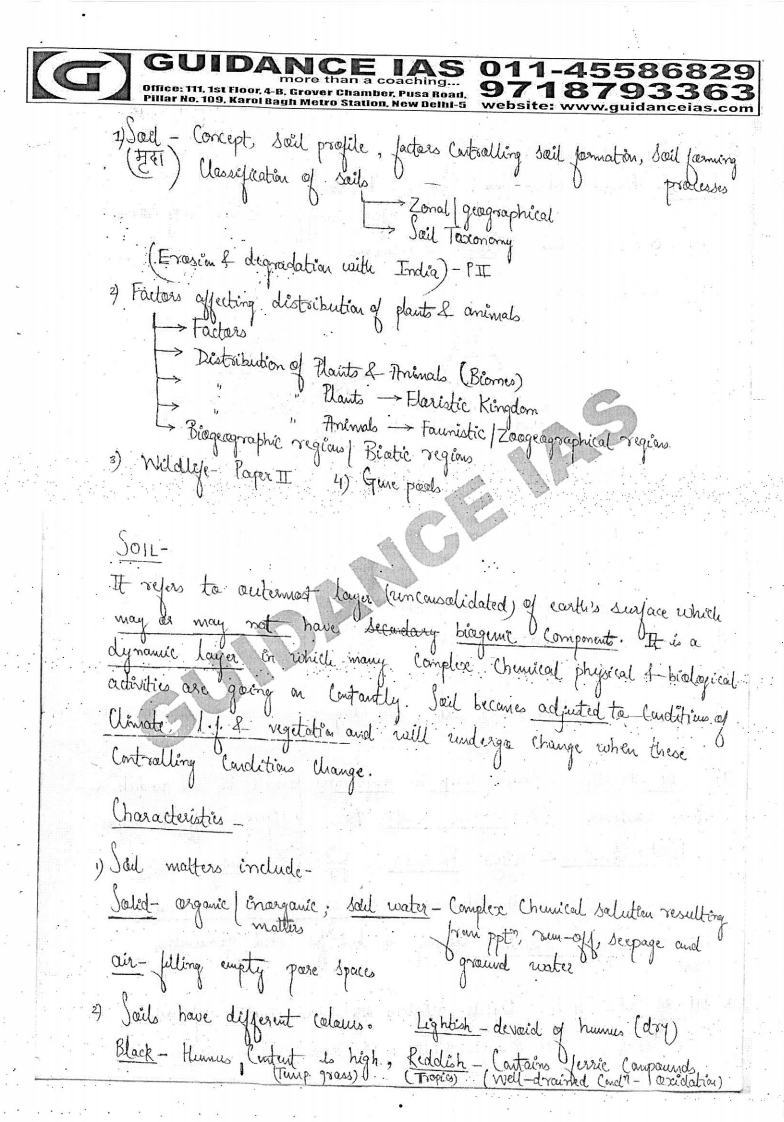 GUIDANCE IAS 011-45586829
more than a coaching...
Office: 111, 1st Floor, 4-B, Grover Chamber, Pusa Road, 9718793363
Pillar No. 109, Karol Bagh Metro Station, New Delhi-5 website: www.guidanceias.com
1) Soil - Concept, soil profile, factors controlling soil formation, soil forming
(मृदा) Classification of soils processes
Zonal/geographical
Soil Taxonomy
(Erosion & degradation with India) - P II
2) Factors affecting distribution of plants & animals
Factors
Distribution of Plants & Animals (Biomes)
" " Plants → Floristic Kingdom
" " Animals → Faunistic/Zoogeographical regions
Biogeographic regions/ Biotic regions
3) Wildlife - Paper II 4) Gene pools
GUIDANCE IAS
SOIL -
It refers to outermost layer (unconsolidated) of earth's surface which
may or may not have secondary biogenic components. It is a
dynamic layer in which many complex chemical physical & biological
activities are going on constantly. Soil becomes adjusted to conditions of
climate l.f & vegetation and will undergo change when these
controlling conditions change.
Characteristics -
1) Soil matters include -
Solid - organic/inorganic; soil water - Complex chemical solution resulting
matters from pptⁿ, run-off, seepage and
air - filling empty pore spaces ground water
2) Soils have different colours. Lightish - devoid of humus (dry)
Black - Humus content is high, Reddish - Contains ferric compounds
(Temp grass) (Tropics) (Well-drained Condⁿ - oxidation)